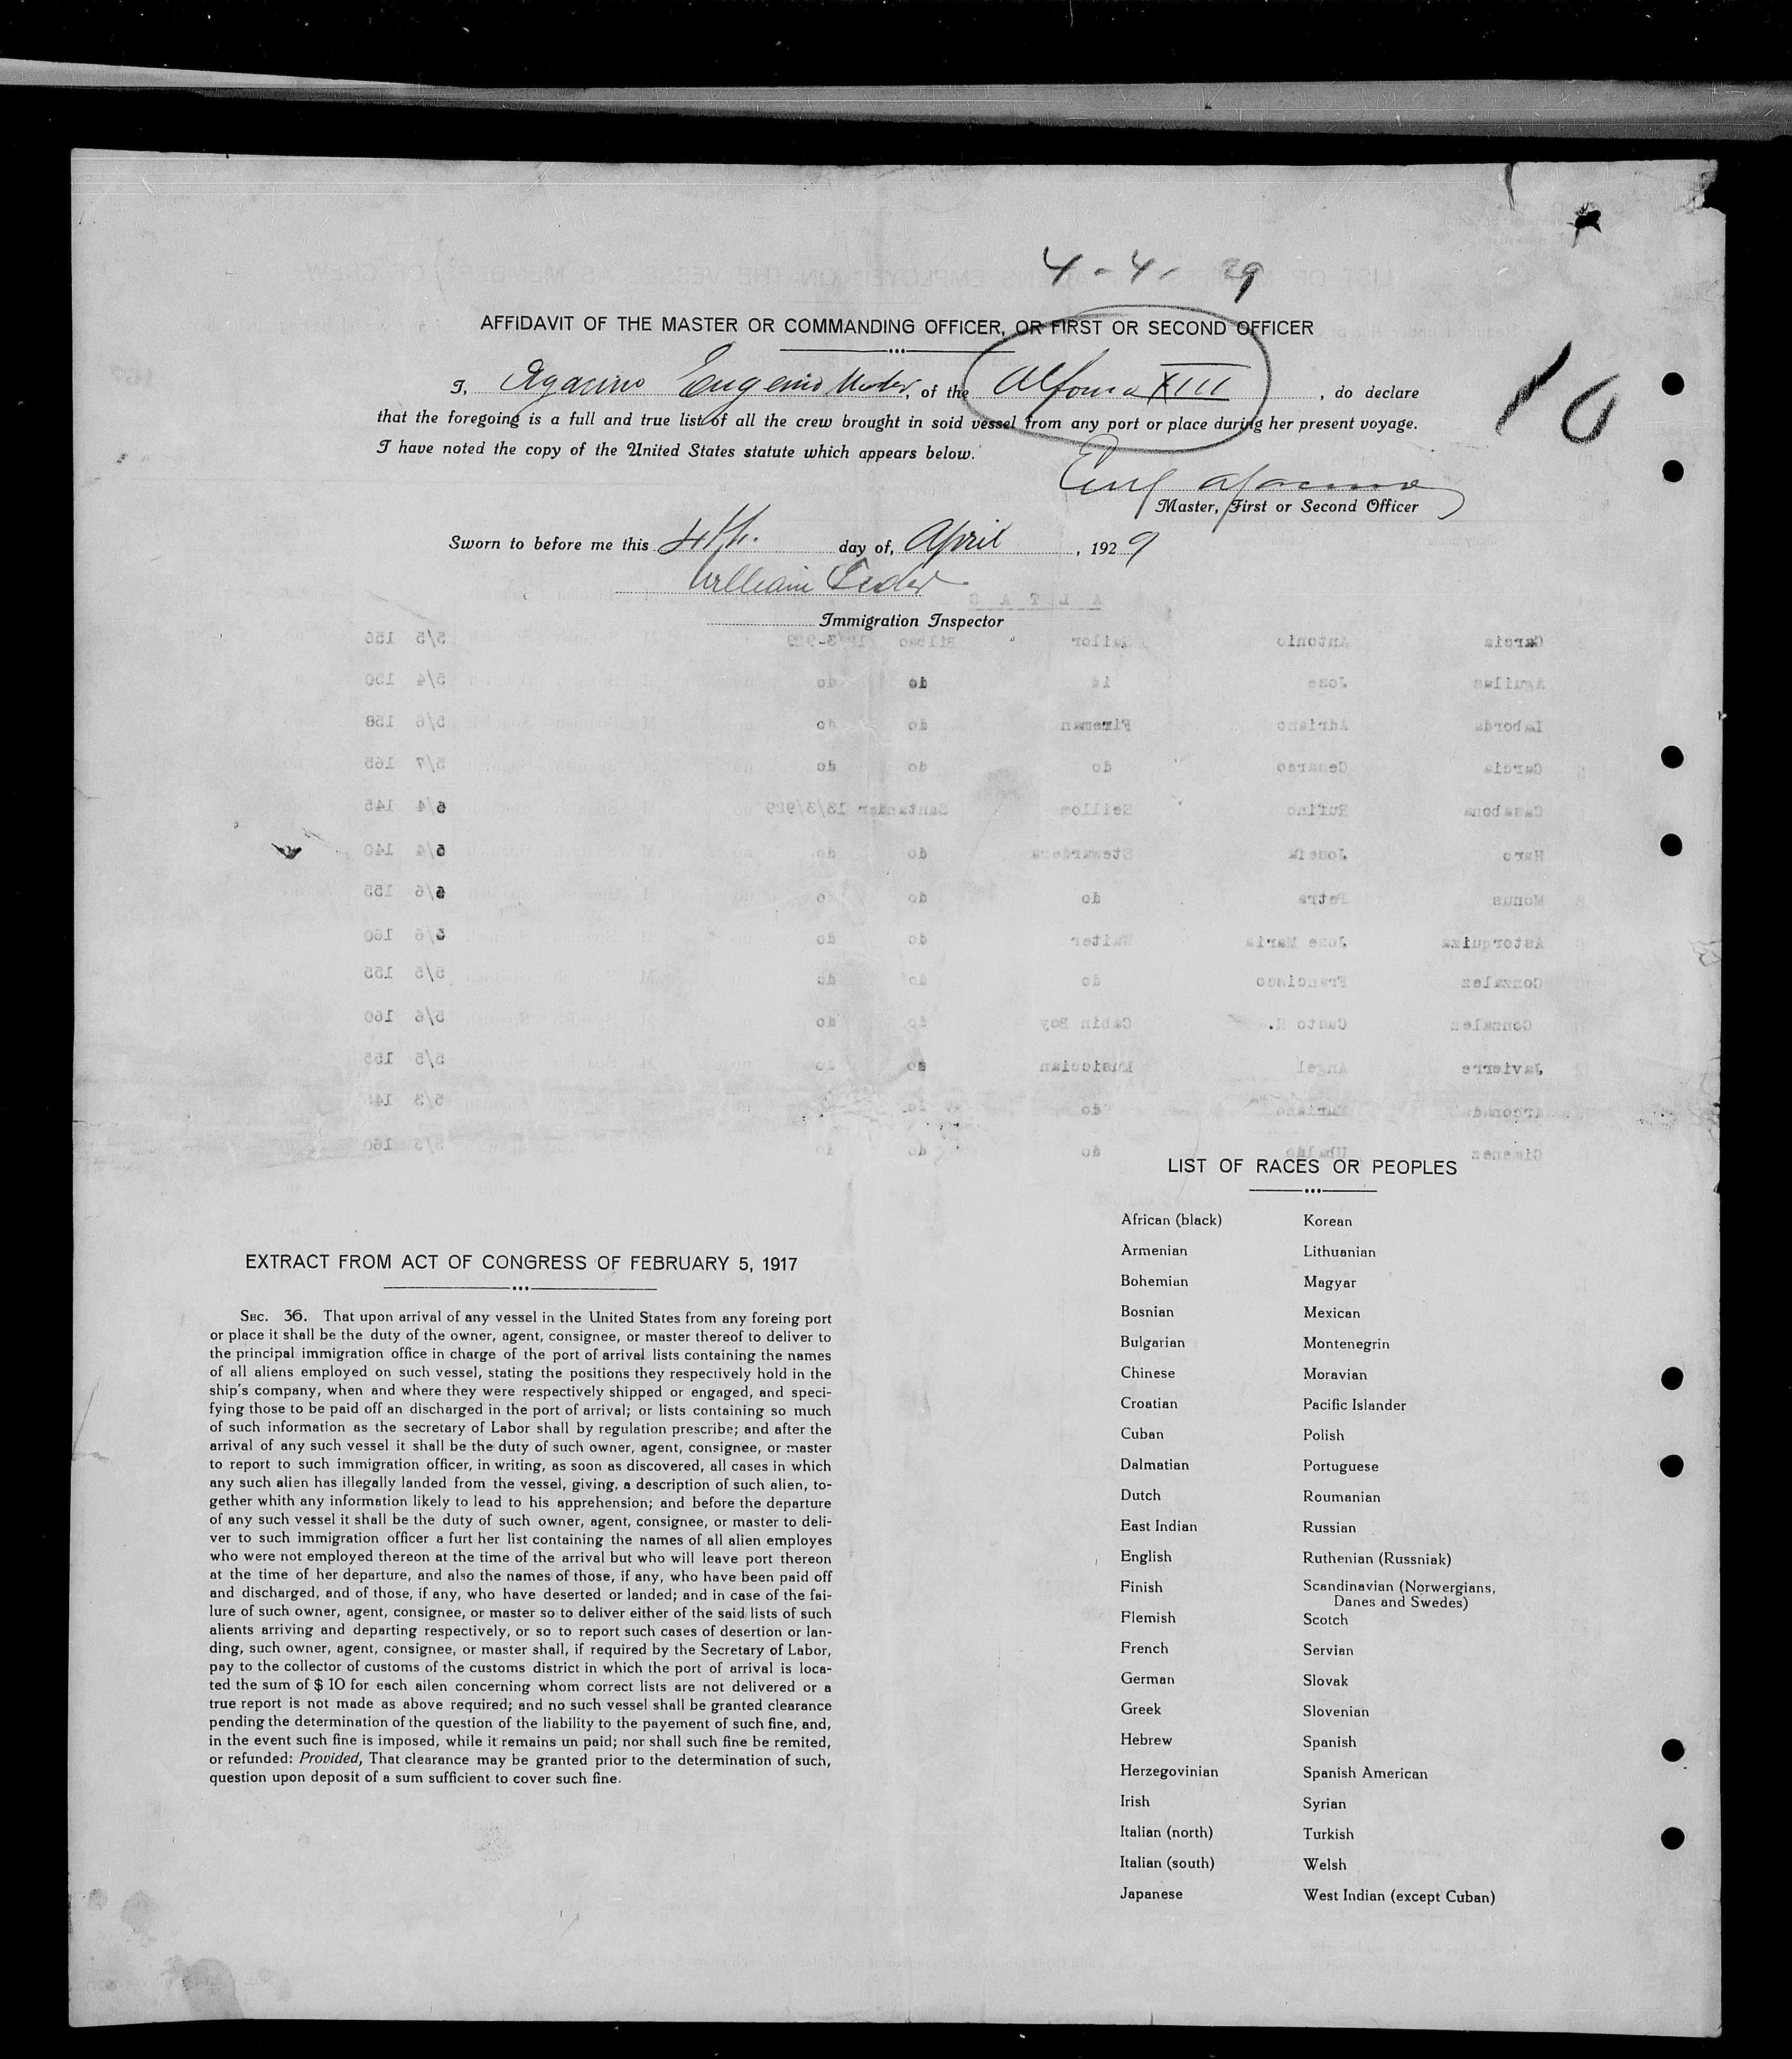 4-4-29
AFFIDAVIT OF THE MASTER OR COMMANDING OFFICER, OR FIRST OR SECOND OFFICER
I, Agacino Eugenio Master, of the Alfonso XIII, do declare
10
that the foregoing is a full and true list of all the crew brought in soid vessel from any port or place during her present voyage.
I have noted the copy of the United States statute which appears below.
Eug Agacino
Master, First or Second Officer
Sworn to before me this 4th. day of, April, 1929
William
Immigration Inspector
LIST OF RACES OR PEOPLES
African (black) Korean
Armenian Lithuanian
Bohemian Magyar
Bosnian Mexican
Bulgarian Montenegrin
Chinese Moravian
Croatian Pacific Islander
Cuban Polish
Dalmatian Portuguese
Dutch Roumanian
East Indian Russian
English Ruthenian (Russniak)
Finish Scandinavian (Norwergians,
Danes and Swedes)
Flemish Scotch
French Servian
German Slovak
Greek Slovenian
Hebrew Spanish
Herzegovinian Spanish American
Irish Syrian
Italian (north) Turkish
Italian (south) Welsh
Japanese West Indian (except Cuban)
EXTRACT FROM ACT OF CONGRESS OF FEBRUARY 5, 1917
SEC. 36. That upon arrival of any vessel in the United States from any foreing port
or place it shall be the duty of the owner, agent, consignee, or master thereof to deliver to
the principal immigration office in charge of the port of arrival lists containing the names
of all aliens employed on such vessel, stating the positions they respectively hold in the
ship's company, when and where they were respectively shipped or engaged, and speci-
fying those to be paid off an discharged in the port of arrival; or lists containing so much
of such information as the secretary of Labor shall by regulation prescribe; and after the
arrival of any such vessel it shall be the duty of such owner, agent, consignee, or master
to report to such immigration officer, in writing, as soon as discovered, all cases in which
any such alien has illegally landed from the vessel, giving, a description of such alien, to-
gether whith any information likely to lead to his apprehension; and before the departure
of any such vessel it shall be the duty of such owner, agent, consignee, or master to deli-
ver to such immigration officer a furt her list containing the names of all alien employes
who were not employed thereon at the time of the arrival but who will leave port thereon
at the time of her departure, and also the names of those, if any, who have been paid off
and discharged, and of those, if any, who have deserted or landed; and in case of the fai-
lure of such owner, agent, consignee, or master so to deliver either of the said lists of such
alients arriving and departing respectively, or so to report such cases of desertion or lan-
ding, such owner, agent, consignee, or master shall, if required by the Secretary of Labor,
pay to the collector of customs of the customs district in which the port of arrival is loca-
ted the sum of $ 10 for each ailen concerning whom correct lists are not delivered or a
true report is not made as above required; and no such vessel shall be granted clearance
pending the determination of the question of the liability to the payement of such fine, and,
in the event such fine is imposed, while it remains un paid; nor shall such fine be remited,
or refunded: Provided, That clearance may be granted prior to the determination of such,
question upon deposit of a sum sufficient to cover such fine.